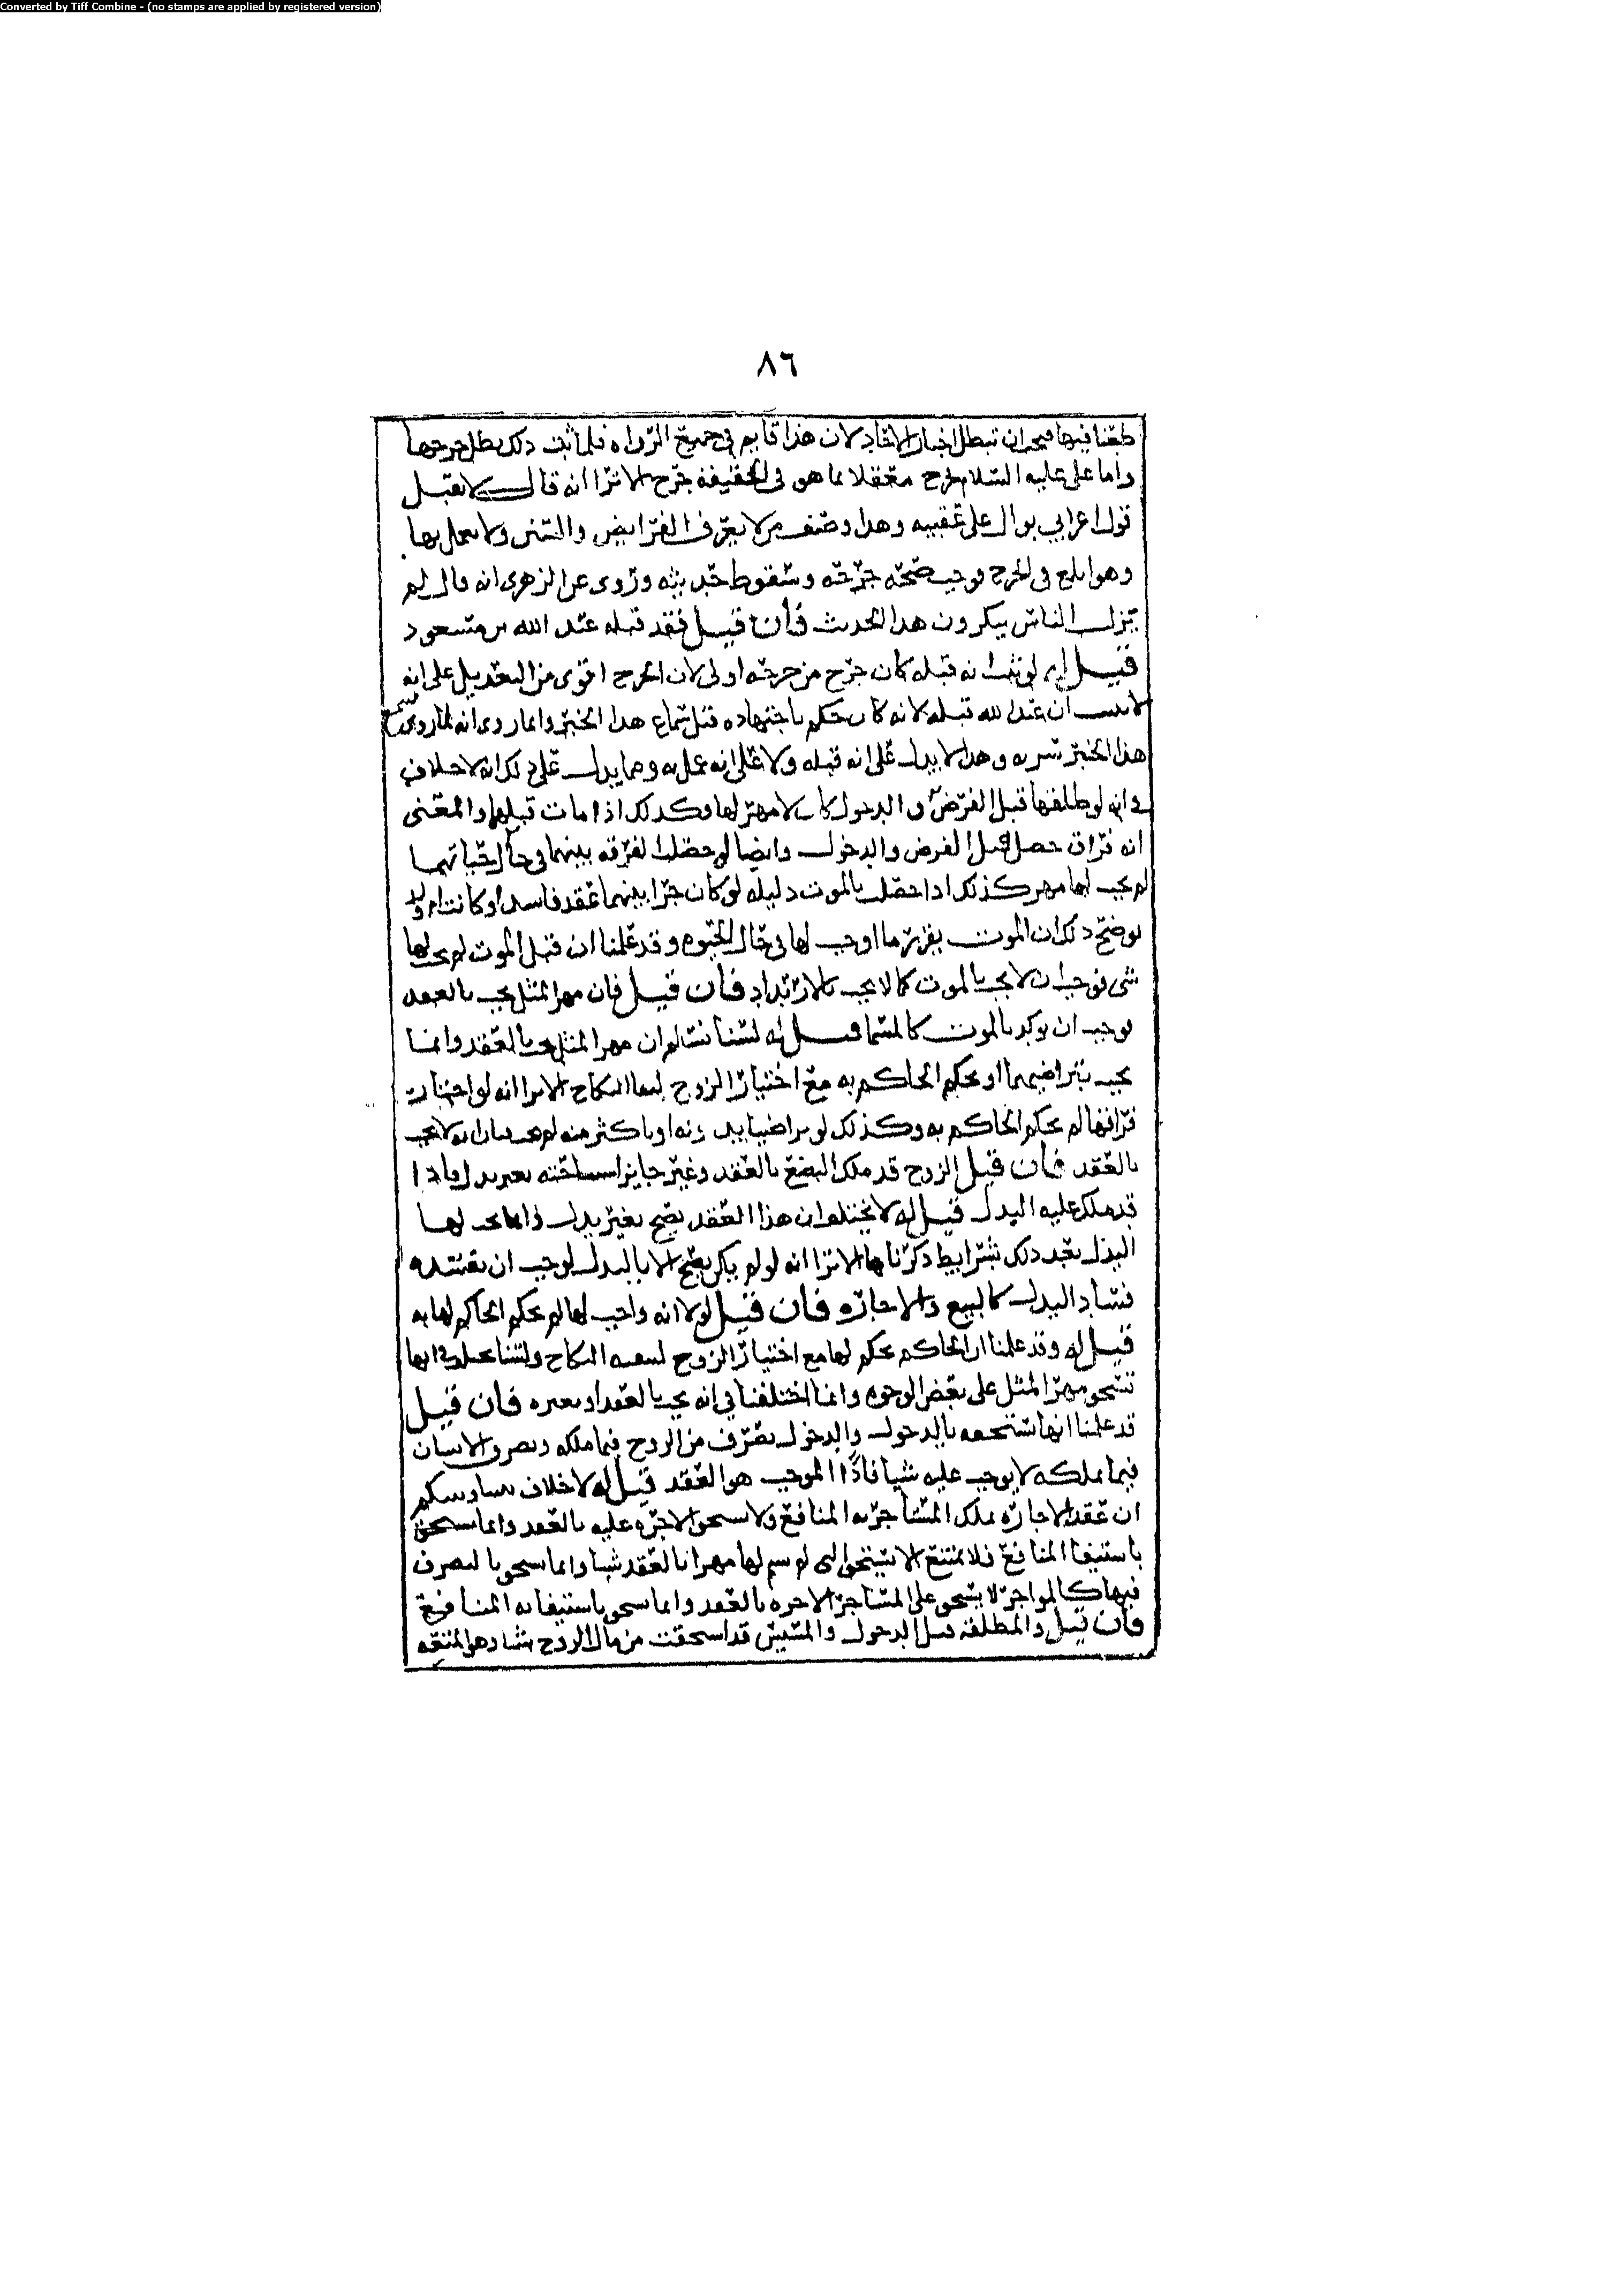 Converted by Tiff Combine - (no stamps are applied by registered version)
٨٦
طعنا فيها فيجب ان تبطل اخبار الاحاد لان هذا قايم في جميع الرواه فلما ثبت ذلك بطل جرحها
واما علي عليه السلام فجرح معقلا بما هو في الحقيقة جرح الا ترا انه قال لا نقبل
قول اعرابي بوال على عقبيه وهذا وصف من لا يعرف الفرايض والسنن ولا يعمل بها
وهو ابلغ في الجرح فوجب صحة جرحه وسقوط حديثه وروى عن الزهري انه قال لم
يزل الناس ينكرون هذا الحديث فان قيل فقد قبله عبد الله بن مسعود
قيل له لو ثبت انه قبله كان جرح من جرحه اولى لان الجرح اقوى من التعديل على انه
لا يثبت ان عبد الله قبله لانه كان حكم باجتهاده قبل سماع هذا الخبر وانما روى انه لما روى
هذا الخبر سر به وهذا لا يدل على انه قبله ولا على انه عمل به ومما يدل على ذلك انه لا خلاف
في انه لو طلقها قبل الفرض والدخول كان لا مهر لها وكذلك اذا مات قبلهما والمعنى
انه فراق حصل قبل الفرض والدخول وايضا لو حصلت الفرقه بينهما في حال حياتهما
لم يجب لها مهر كذلك اذا حصلت بالموت دليله لو كان جرا بينهما عقد فاسد او كانت ام ولد
يوضح ذلك ان الموت يقرر ما اوجب لها في حال الحيوه وقد علمنا ان قبل الموت لم يجب لها
شي فوجب ان لا يجب بالموت كما لا يجب بالارتداد فان قيل فان مهر المثل يجب بالعقد
فوجب ان يوكد بالموت كالمسما قيل له لسنا نسلم ان مهر المثل يجب بالعقد وانما
يجب بتراضيهما او بحكم الحاكم به مع اختيار الزوج لبقا النكاح الا ترا انه لو اختار
فراقها لم يحكم الحاكم به وكذلك لو تراضيا بدونه او باكثر منه لم يجب فبان انه لا يجب
بالعقد فان قيل الزوج قد ملك البضع بالعقد وغير جايز استباحته بغير بدل فاذا
قد ملك عليه البدل قيل له لا يختلفوا ان هذا العقد يصح بغير بدل وانما يجب لها
البدل بعد ذلك بشرايط ذكرناها الا ترا انه لو لم يكن يصح الا بالبدل لوجب ان يفسده
فساد البدل كالبيع والاجاره فان قيل لولا انه واجب لها لم يحكم الحاكم لها به
قيل له وقد علمنا ان الحاكم يحكم لها مع اختيار الزوج لتبقيه النكاح ولسنا نختلف في انها
تستحق مهر المثل على بعض الوجوه وانما اختلفنا في انه يجب بالعقد او بغيره فان قيل
قد علمنا انها تستحقه بالدخول والدخول تصرف من الزوج فيما ملكه وتصرف الانسان
فيما يملكه لا يوجب عليه شيا فاذا الموجب هو العقد قيل له لا خلاف بيننا وبينكم
ان عقد الاجاره يملك المستاجر به المنافع ولا يستحق الاجره عليه بالعقد وانما يستحق
باستيفا المنافع فلا يمتنع الا تستحق التي لم يسم لها مهرا بالعقد شيا وانما تستحق بالتصرف
فيها كالمواجر لا يستحق على المستاجر الاجره بالعقد وانما يستحق باستيفايه المنافع
فان قيل والمطلقه قبل الدخول والمسيس قد استحقت من مال الزوج شيا وهو المتعه